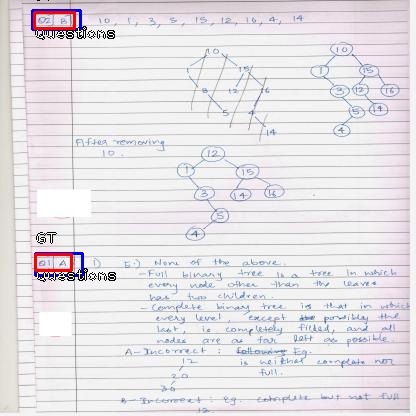 Q2 B 10, 1, 3, 5, 15, 12, 16, 4, 14
Questions
10
1 15
3 12 16
5 4
14
10
1 15
3 12 16
5 14
4
After removing
10.
12
1 15
3 14 16
5
4
GT
Q1 A i) E.) None of the above.
Questions
- Full binary tree is a tree in which
every node other than the leaves
has two children.
- Complete binary tree is that in which
every level, except possibly the
last, is completely filled, and all
nodes are as far left as possible.
A - Incorrect : Eg.
12 is neither complete nor
20 full.
30
B - Incorrect : Eg. complete but not full
12